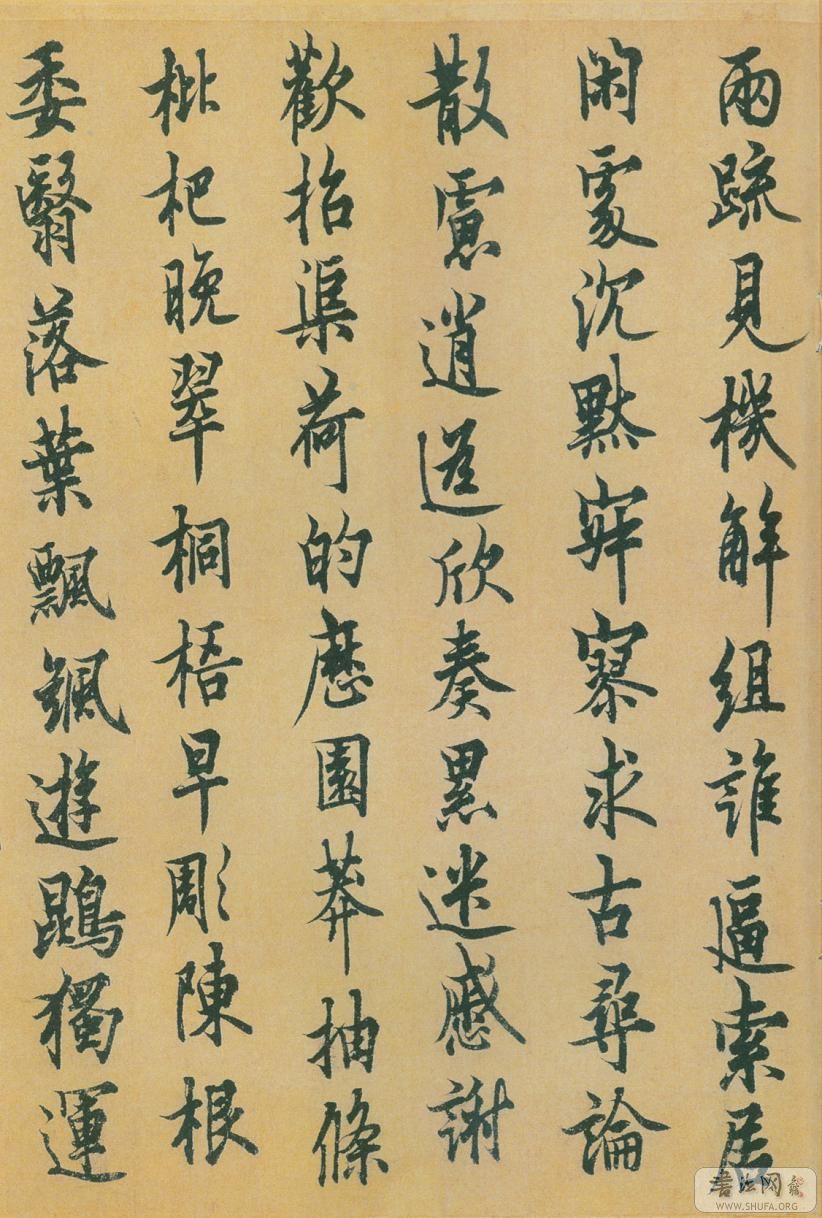 兩疏見機解組誰逼索居
閑處沉默寂寥求古尋論
散慮逍遥欣奏累迷慼謝
歡招渠荷的歷園莽抽條
枇杷晚翠桐梧早彫陳根
委翳落葉飄颻遊鵾獨運
書法网
WWW.SHUFA.ORG